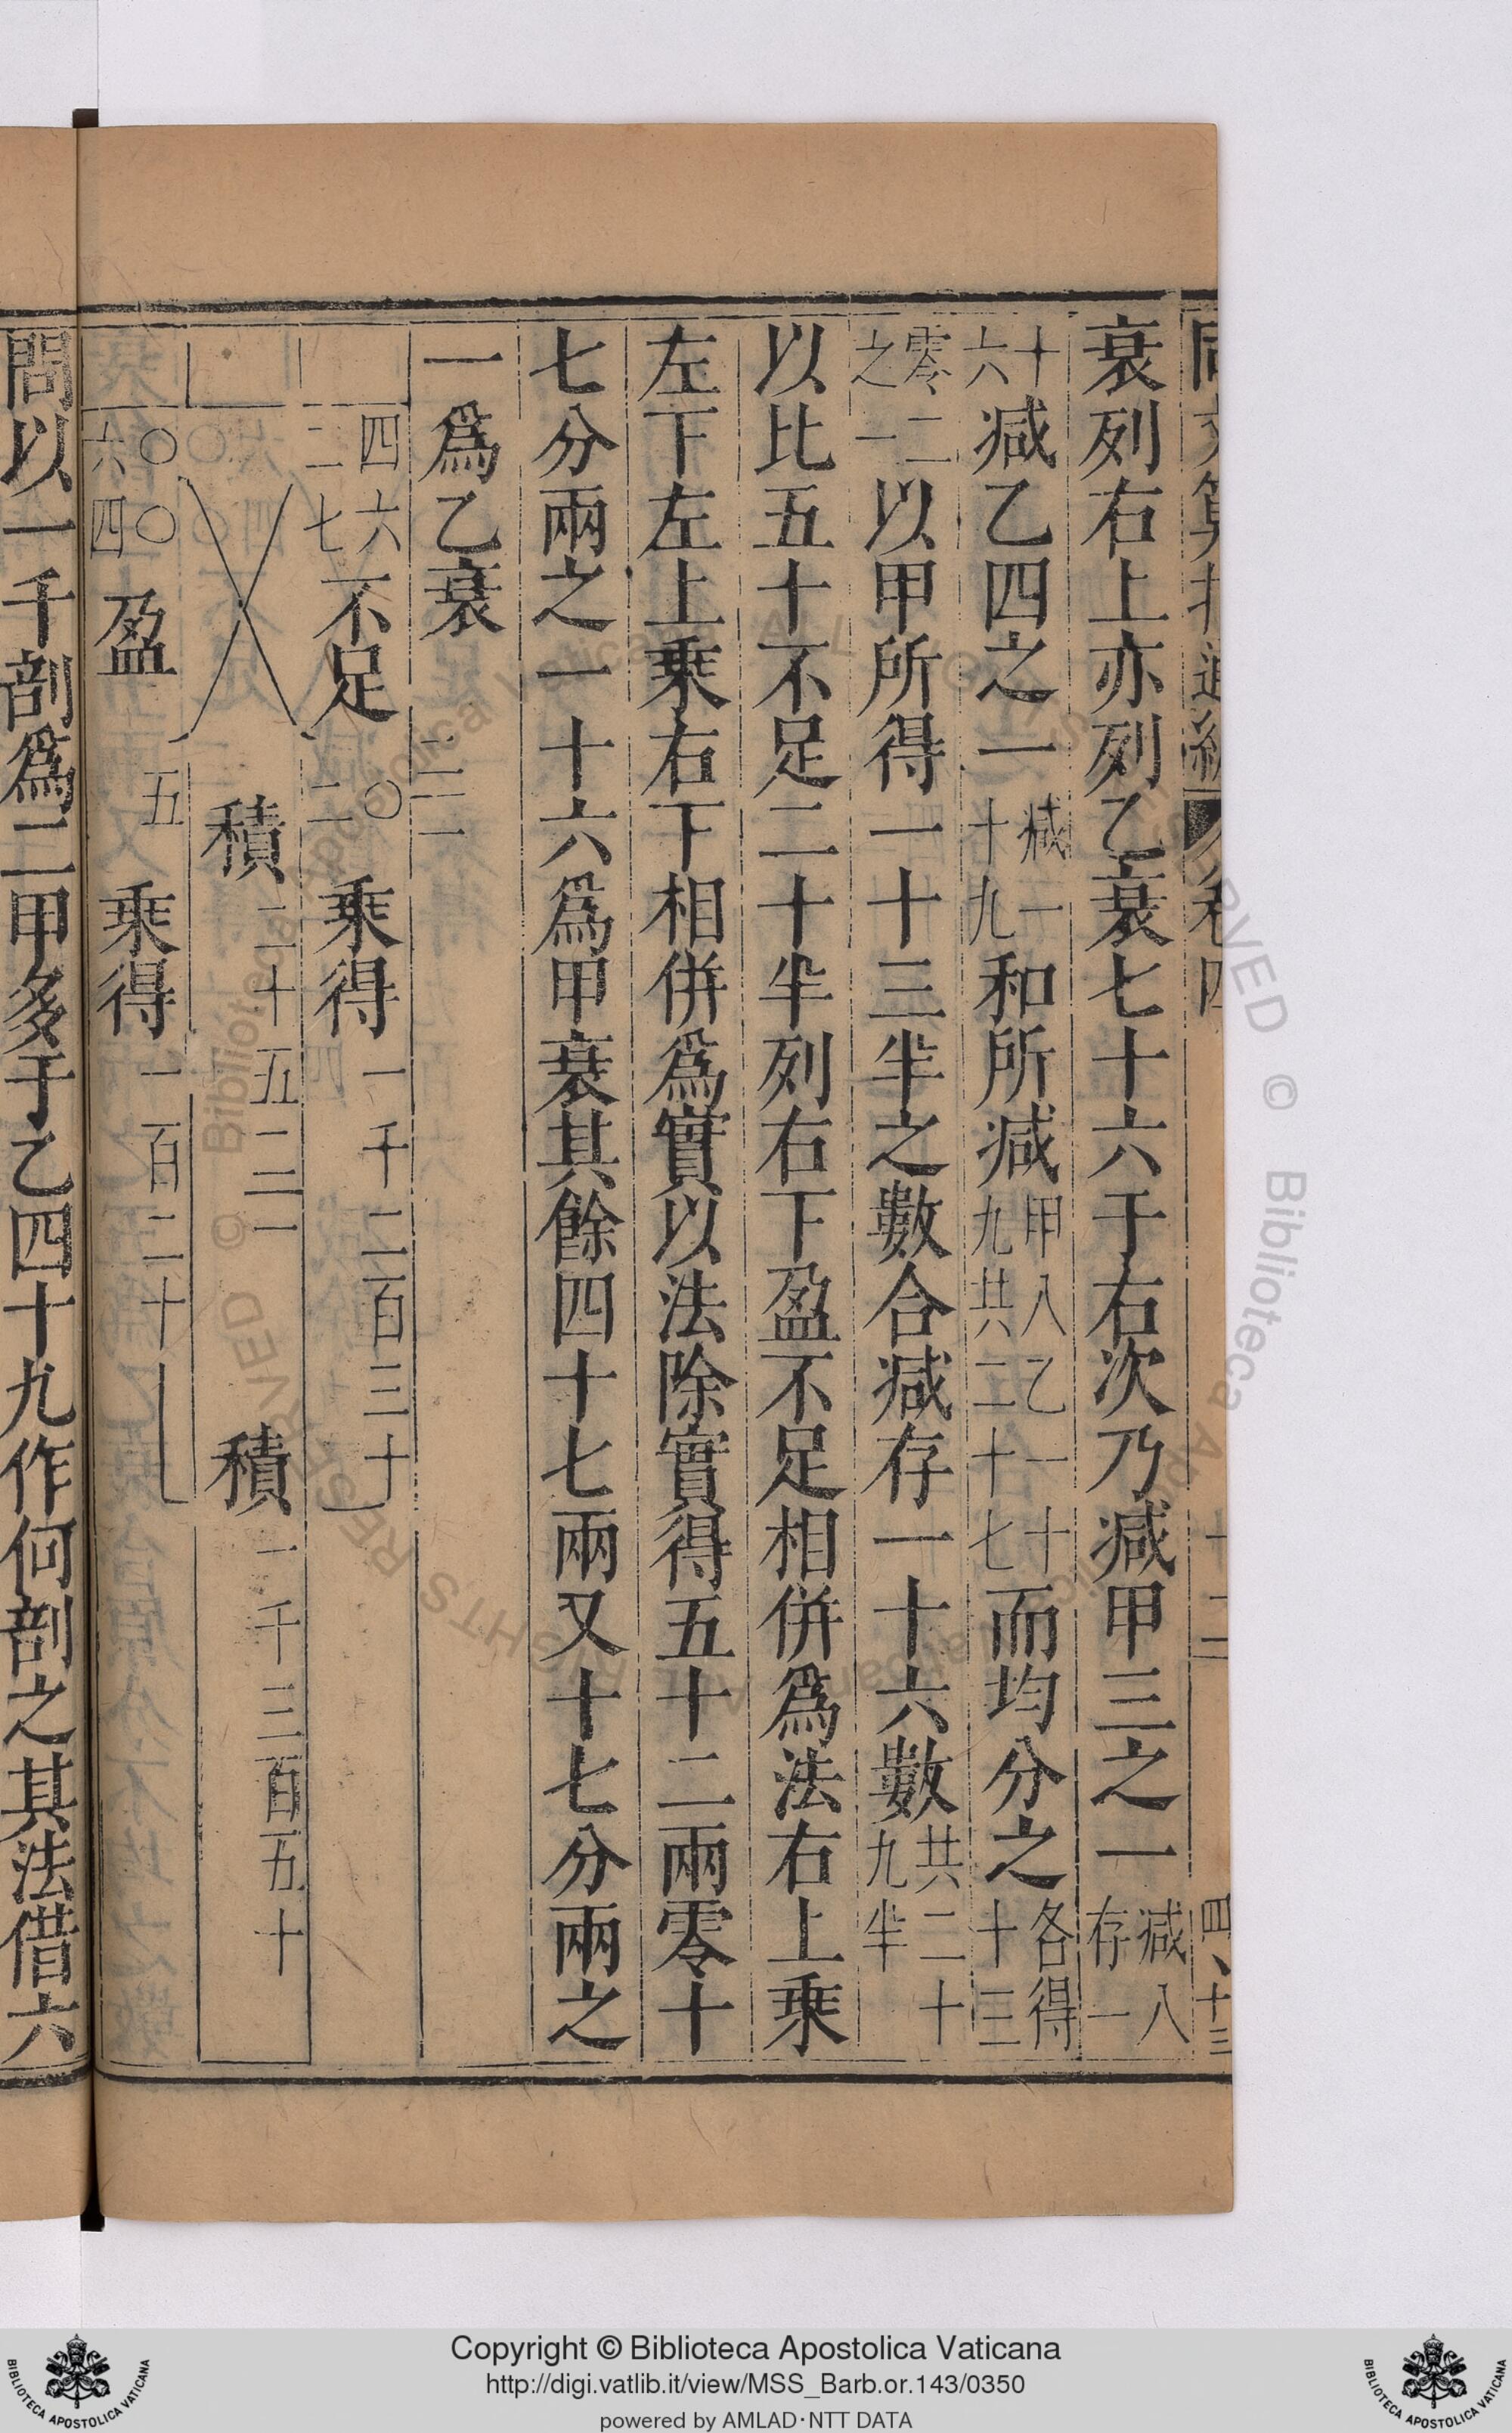 同文算指通編 卷四 十二 四、十三
衰列右上亦列乙衰七十六于右次乃減甲三之一減八存一
十六減乙四之一減一十九和所減甲八乙一十九共二十七而均分之各得十三
零二之一以甲所得一十三半之數合減存一十六數共二十九半
以比五十不足二十半列右下盈不足相併爲法右上乘
左下左上乘右下相併爲實以法除實得五十二兩零十
七分兩之一十六爲甲衰其餘四十七兩又十七分兩之
一爲乙衰 二一
四六二七不足 〇二 乘得 一千二百三十
積 二十五 二一 積 一千三百五十
〇〇六四盈 五 乘得 一百二十
問以一千剖爲二甲多于乙四十九作何剖之其法借六
Copyright © Biblioteca Apostolica Vaticana
http://digi.vatlib.it/view/MSS_Barb.or.143/0350
powered by AMLAD·NTT DATA